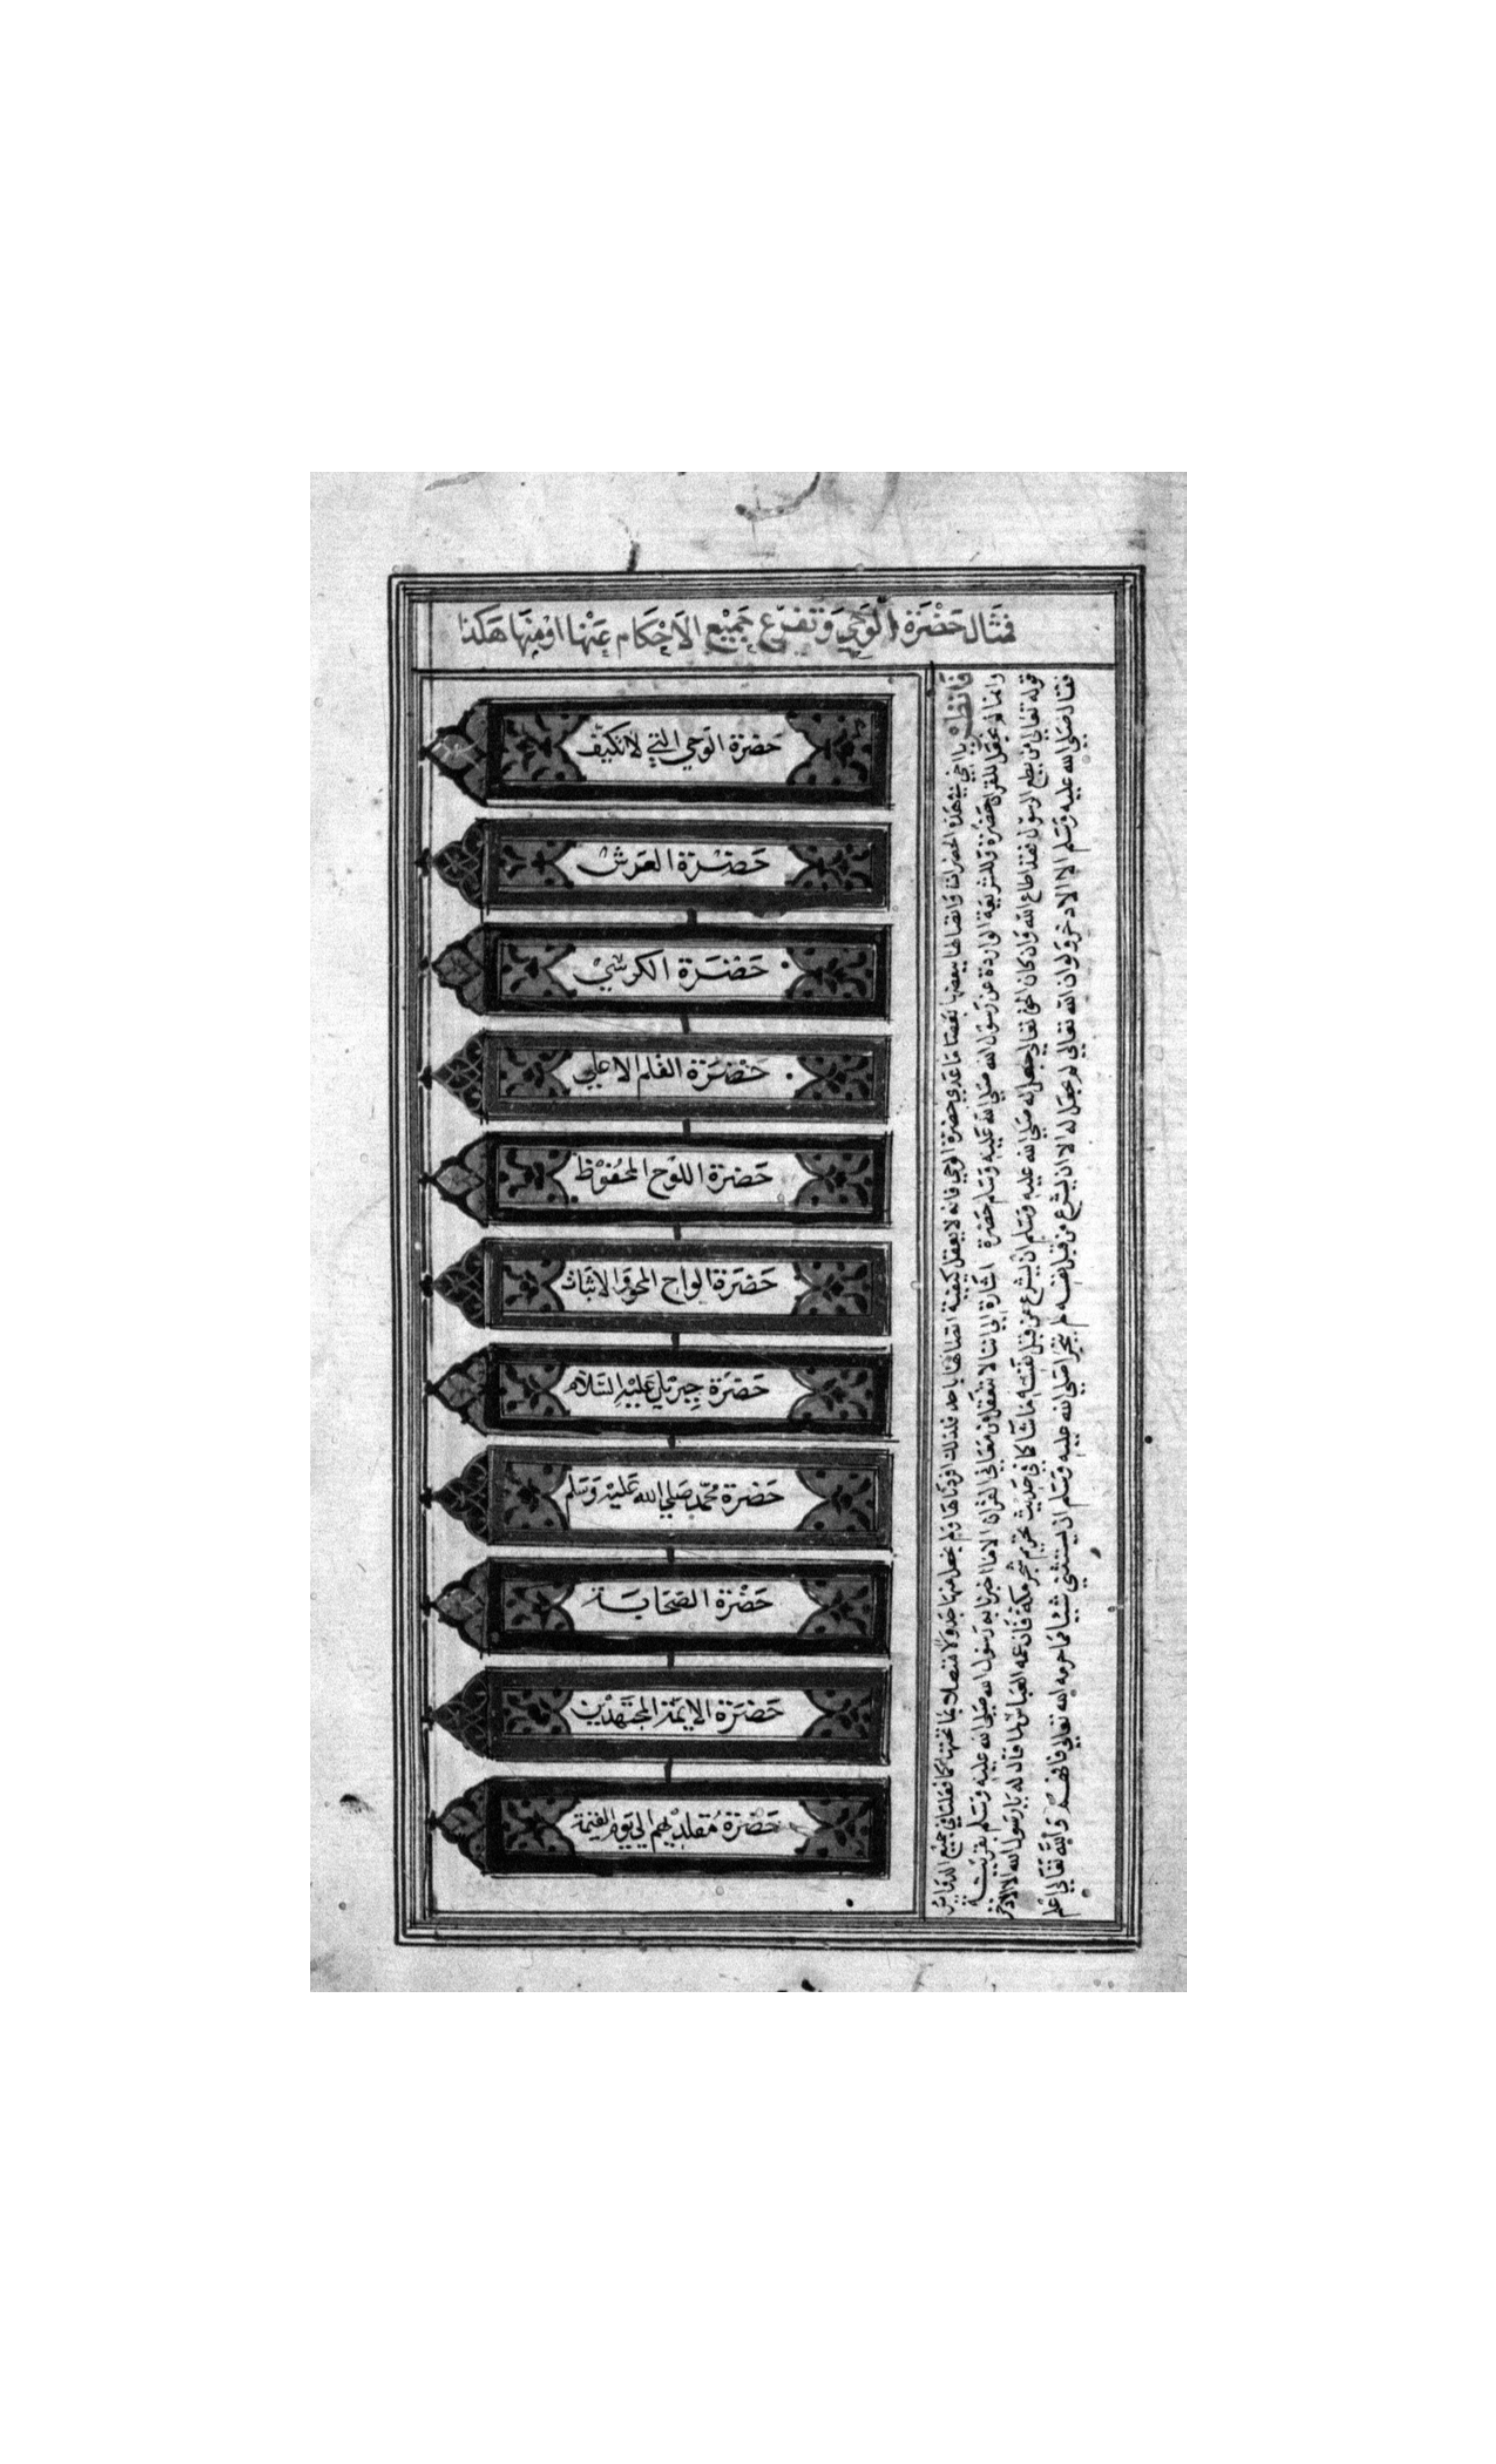 فمثال حَضْرَة الوَحي وَتفرّع جَميْع الاَحْكام عَنْها اوْ مِنهَا هَكذا
حَضرَة الوَحي التي لاتكيّف
حَضْرَة العَرش
حَضْرَة الكرسْي
حَضْرَة القلم الاعلي
حَضرَة اللوْح المحْفوْظ
حَضرَة الواح المحو وَالاثبات
حَضرَة جبريل عَليْهِ السَّلام
حَضْرة محمّد صَلي الله عَليْه وَسَلم
حَضْرَة الصَحَابَة
حَضرَة الايمَة المجتَهدْين
حَضرَة مُقلدْيهم الي يَوم القيمَة
فَانظر يا اخي في هَذه الحضرات وَاتصالها ببعضها بَعضا مَا عَدي حَضرة الوحي فانه لا يعقل كيفية اتصالها باحد فلذلك افردنَاهَا وَلم نجعل منهَا جَدوَلا متصلا بما تحتهَا كما فعلنا في جميع الدَوَاير
وَانما لم نجعَل للقرآن حَضْرَة وَللشريعَة الوَاردَة عَن رَسُول الله صَلي الله عَليْه وَسَلم حَضرة اشارة الي اننا لا نتعقل من مَعَاني القرآن الا ما اخبرنا به رَسُول الله صَلي الله عليه وَسَلم بقرينة
قوله تعَالي من يطع الرسوْل فقد اطاع الله وَان كان الحق تعَالي جعل له صَلي الله عليه وَسَلم ان يشرع من قبل نفسه مَا شا كما في حَديث تحريم شجر مكة فان عمه العَباس لما قال له يارَسول الله الا الاذخر
فقال صَلي الله عليه وَسَلم الا الاذخر وَلو ان الله تعالي لم يجعَل له الا ان يشرع من قبل نفسه لم يتجرا صَلي الله عليه وَسَلم ان يستثني شيا مما حرمه الله تعَالي فافهم وَالله تَعَالي اعْلم